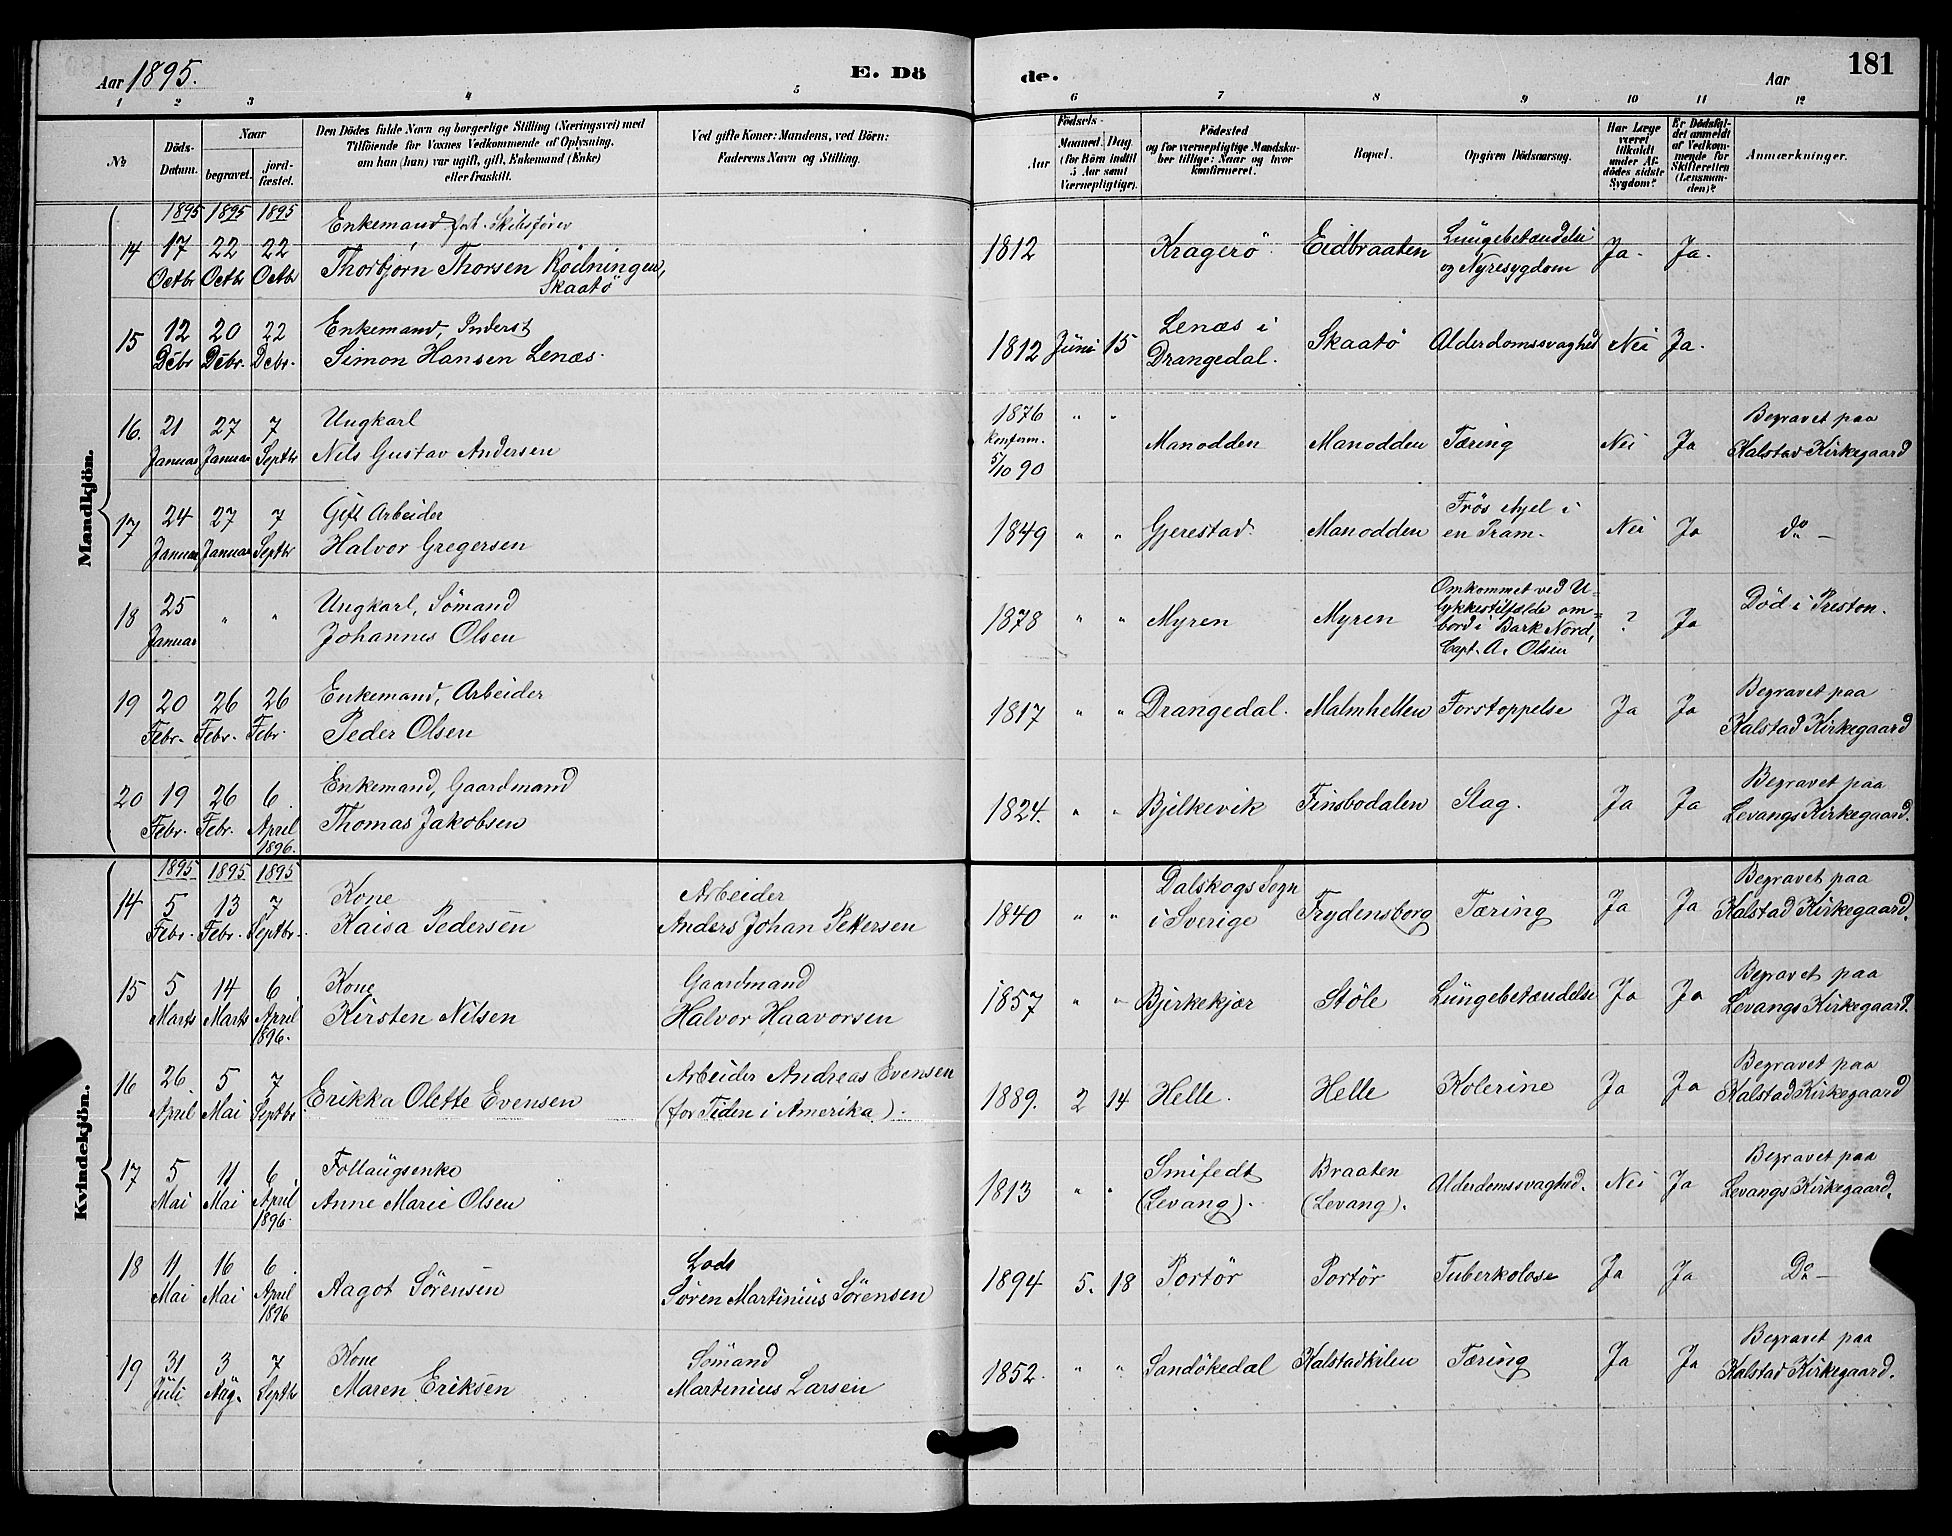 Aar 1895. E. Dö de. Aar 181
1 2 3 4 5 6 7 8 9 10 11 12
№
Döds-
Datum.
Naar
begravet.
jord-
fæstet.
Den Dödes fulde Navn og borgerlige Stilling (Næringsvei) med
Tilföiende for Voxnes Vedkommende af Oplysning,
om han (hun) var ugift, gift, Enkemand (Enke)
eller fraskilt.
Ved gifte Koner: Mandens, ved Börn:
Faderens Navn og Stilling.
Födsels-
Aar
Maaned.
(for Börn indtil
5 Aar samt
Værnepligtige).
Dag
Födested
og for værnepligtige Mandska-
ber tillige: Naar og hvor
konfirmeret.
Bopæl.
Opgiven Dödsaarsag.
Har Læge
været
tilkaldt
under Af-
dödes sidste
Sygdom?
Er Dödsfal-
det anmeldt
af Vedkom-
mende for
Skifteretten
(Lensman-
den)?
Anmærkninger.
Mandkjön.
1895 1895 1895
14 17 Octbr 22 Octbr 22 Octbr
Enkemand fort. Skibsfører
Thorbjørn Thorsen Rödningen,
Skaatö
1812 Kragerö Eidbraaten
Lungebetændelse
og Nyresygdom
Ja. Ja.
15 12 Decbr 20 Decbr. 22 Decbr.
Enkemand, Inderst
Simon Hansen Lenæs.
1812 Juni 15
Lenæs i
Drangedal.
Skaatö Alderdomssvaghed Nei Ja.
16. 21 Januar 27 Januar 7 Septbr
Ungkarl
Nils Gustav Andersen
1876
Konform.
5/10 90
" "
Manodden Manodden Tæring Nei Ja
Begravet paa
Kalstad Kirkegaard
17 24 Januar 27 Januar 7 Septbr
Gift Arbeider
Halvor Gregersen
1849 " " Gjerestad. Manodden
Frös ihjel i
en Pram.
Nei Ja do —
18 25 Januar " "
Ungkarl, Sömand
Johannes Olsen
1878 " " Myren Myren
Omkommet ved U-
lykkestilfælde om-
bord i Bark Nord,
Capt. A. Olsen
? Ja Död i Preston.
19 20 Febr. 26 Febr. 26 Febr.
Enkemand, Arbeider
Peder Olsen
1817 " " Drangedal. Malmhellen Forstoppelse Ja Ja
Begravet paa
Kalstad Kirkegaard
20 19 Febr. 26 Febr. 6 April 1896.
Enkemand, Gaardmand
Thomas Jakobsen
1824. " " Bjelkevik Finsbodalen Slag. Ja Ja
Begravet paa
Levangs Kirkegaard.
Kvindekjön.
1895 1895 1895
14 5 Febr. 13 Febr. 7 Septbr.
Kone
Kaisa Pedersen
Arbeider
Anders Johan Pettersen
1840 " "
Dalskogs Sogn
i Sverige
Frydensborg Tæring Ja Ja
Begravet paa
Kalstad Kirkegaard.
15 5 Marts 14 Marts 6 April 1896.
Kone
Kirsten Nilsen
Gaardmand
Halvor Haavorsen
1857 " " Bjerkekjær Stöle Lungebetændelse Ja Ja
Begravet paa
Levangs Kirkegaard.
16 26 April 5 Mai 7 Septbr
Erikka Olette Evensen
Arbeider Andreas Evensen
(for Tiden i Amerika).
1889. 2 14 Helle. Helle Kolerine Ja Ja
Begravet paa
Kalstad Kirkegaard
17 5 Mai 11 Mai 6 April 1896.
Follaugsenke
Anne Marie Olsen
1813 " "
Smifedt
(Levang).
Braaten
(Levang).
Alderdomssvaghed. Nei Ja
Begravet paa
Levangs Kirkegaard.
18 11 Mai 16 Mai 6 April 1896
Aagot Sørensen
Lods
Søren Martinius Sørensen
1894 5. 18 Portör Portör Tuberkolose Ja Ja Do —
19 31 Juli 3 Aug. 7 Septbr
Kone
Maren Eriksen
Sømand
Martinius Larsen
1852. " " Sandökedal Kalstadkilen Tæring Ja Ja
Begravet paa
Kalstad Kirkegaard.